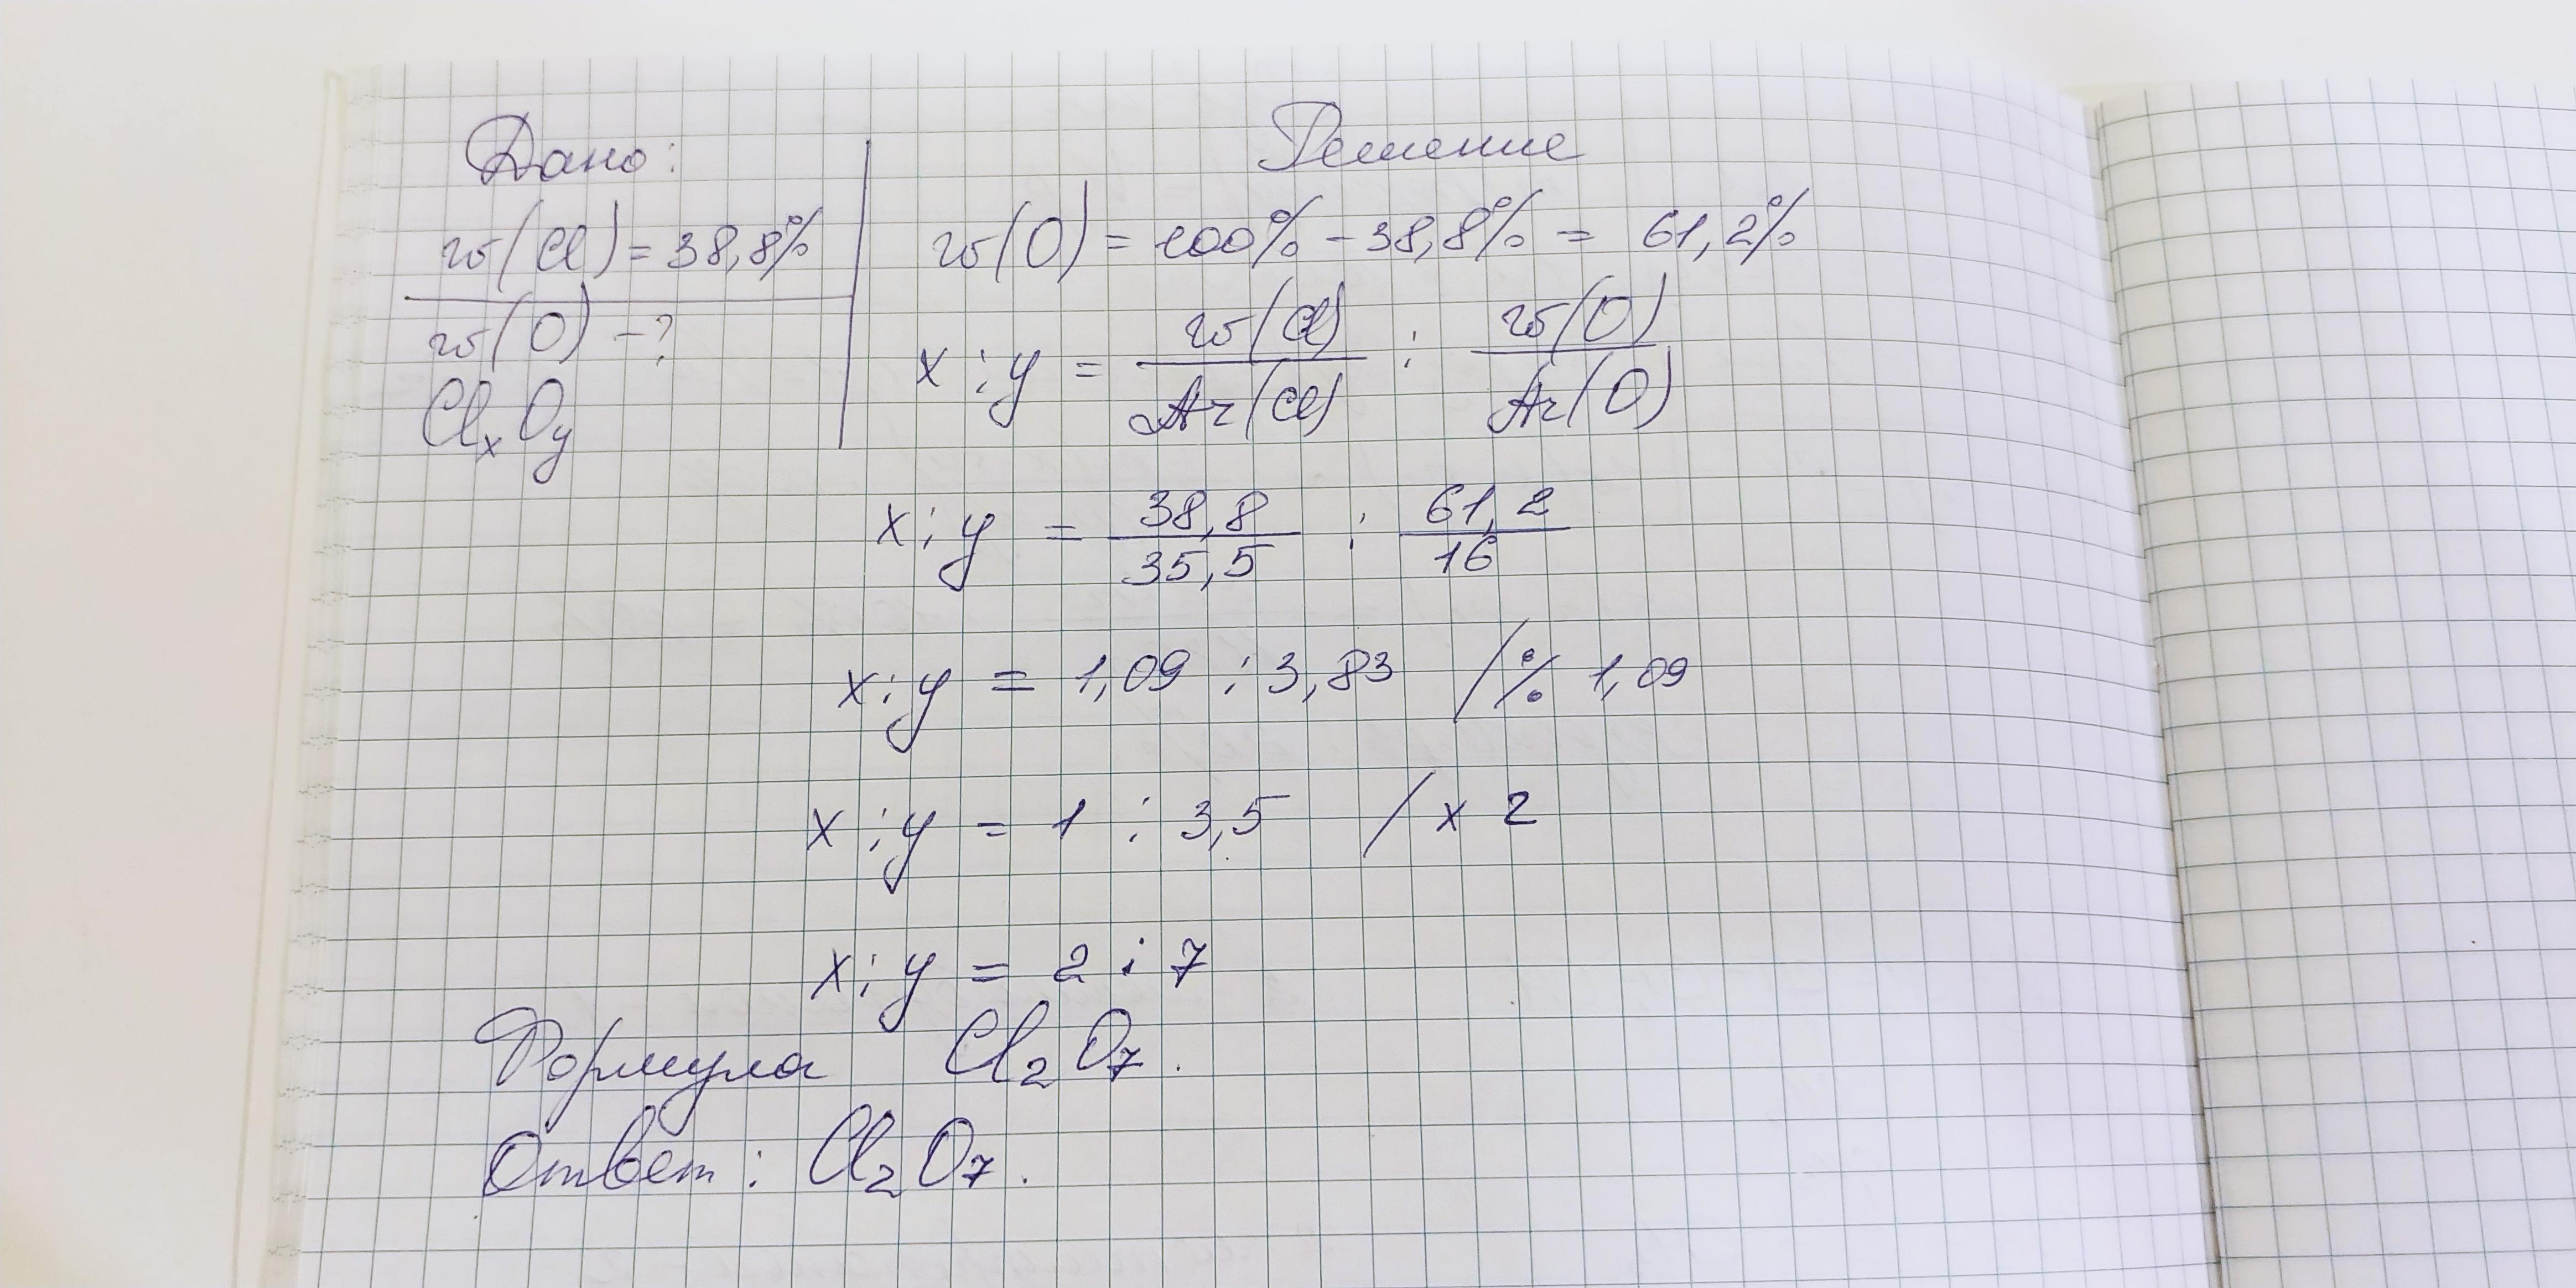 Дано:
w(Cl) = 38,8%
w(O) - ?
ClxOy
Решение
w(O) = 100% - 38,8% = 61,2%
x : y = w(Cl) / Ar(Cl) : w(O) / Ar(O)
x : y = 38,8 / 35,5 : 61,2 / 16
x : y = 1,09 : 3,83 /% 1,09
x : y = 1 : 3,5 / x 2
x : y = 2 : 7
Формула Cl₂O₇.
Ответ: Cl₂O₇.